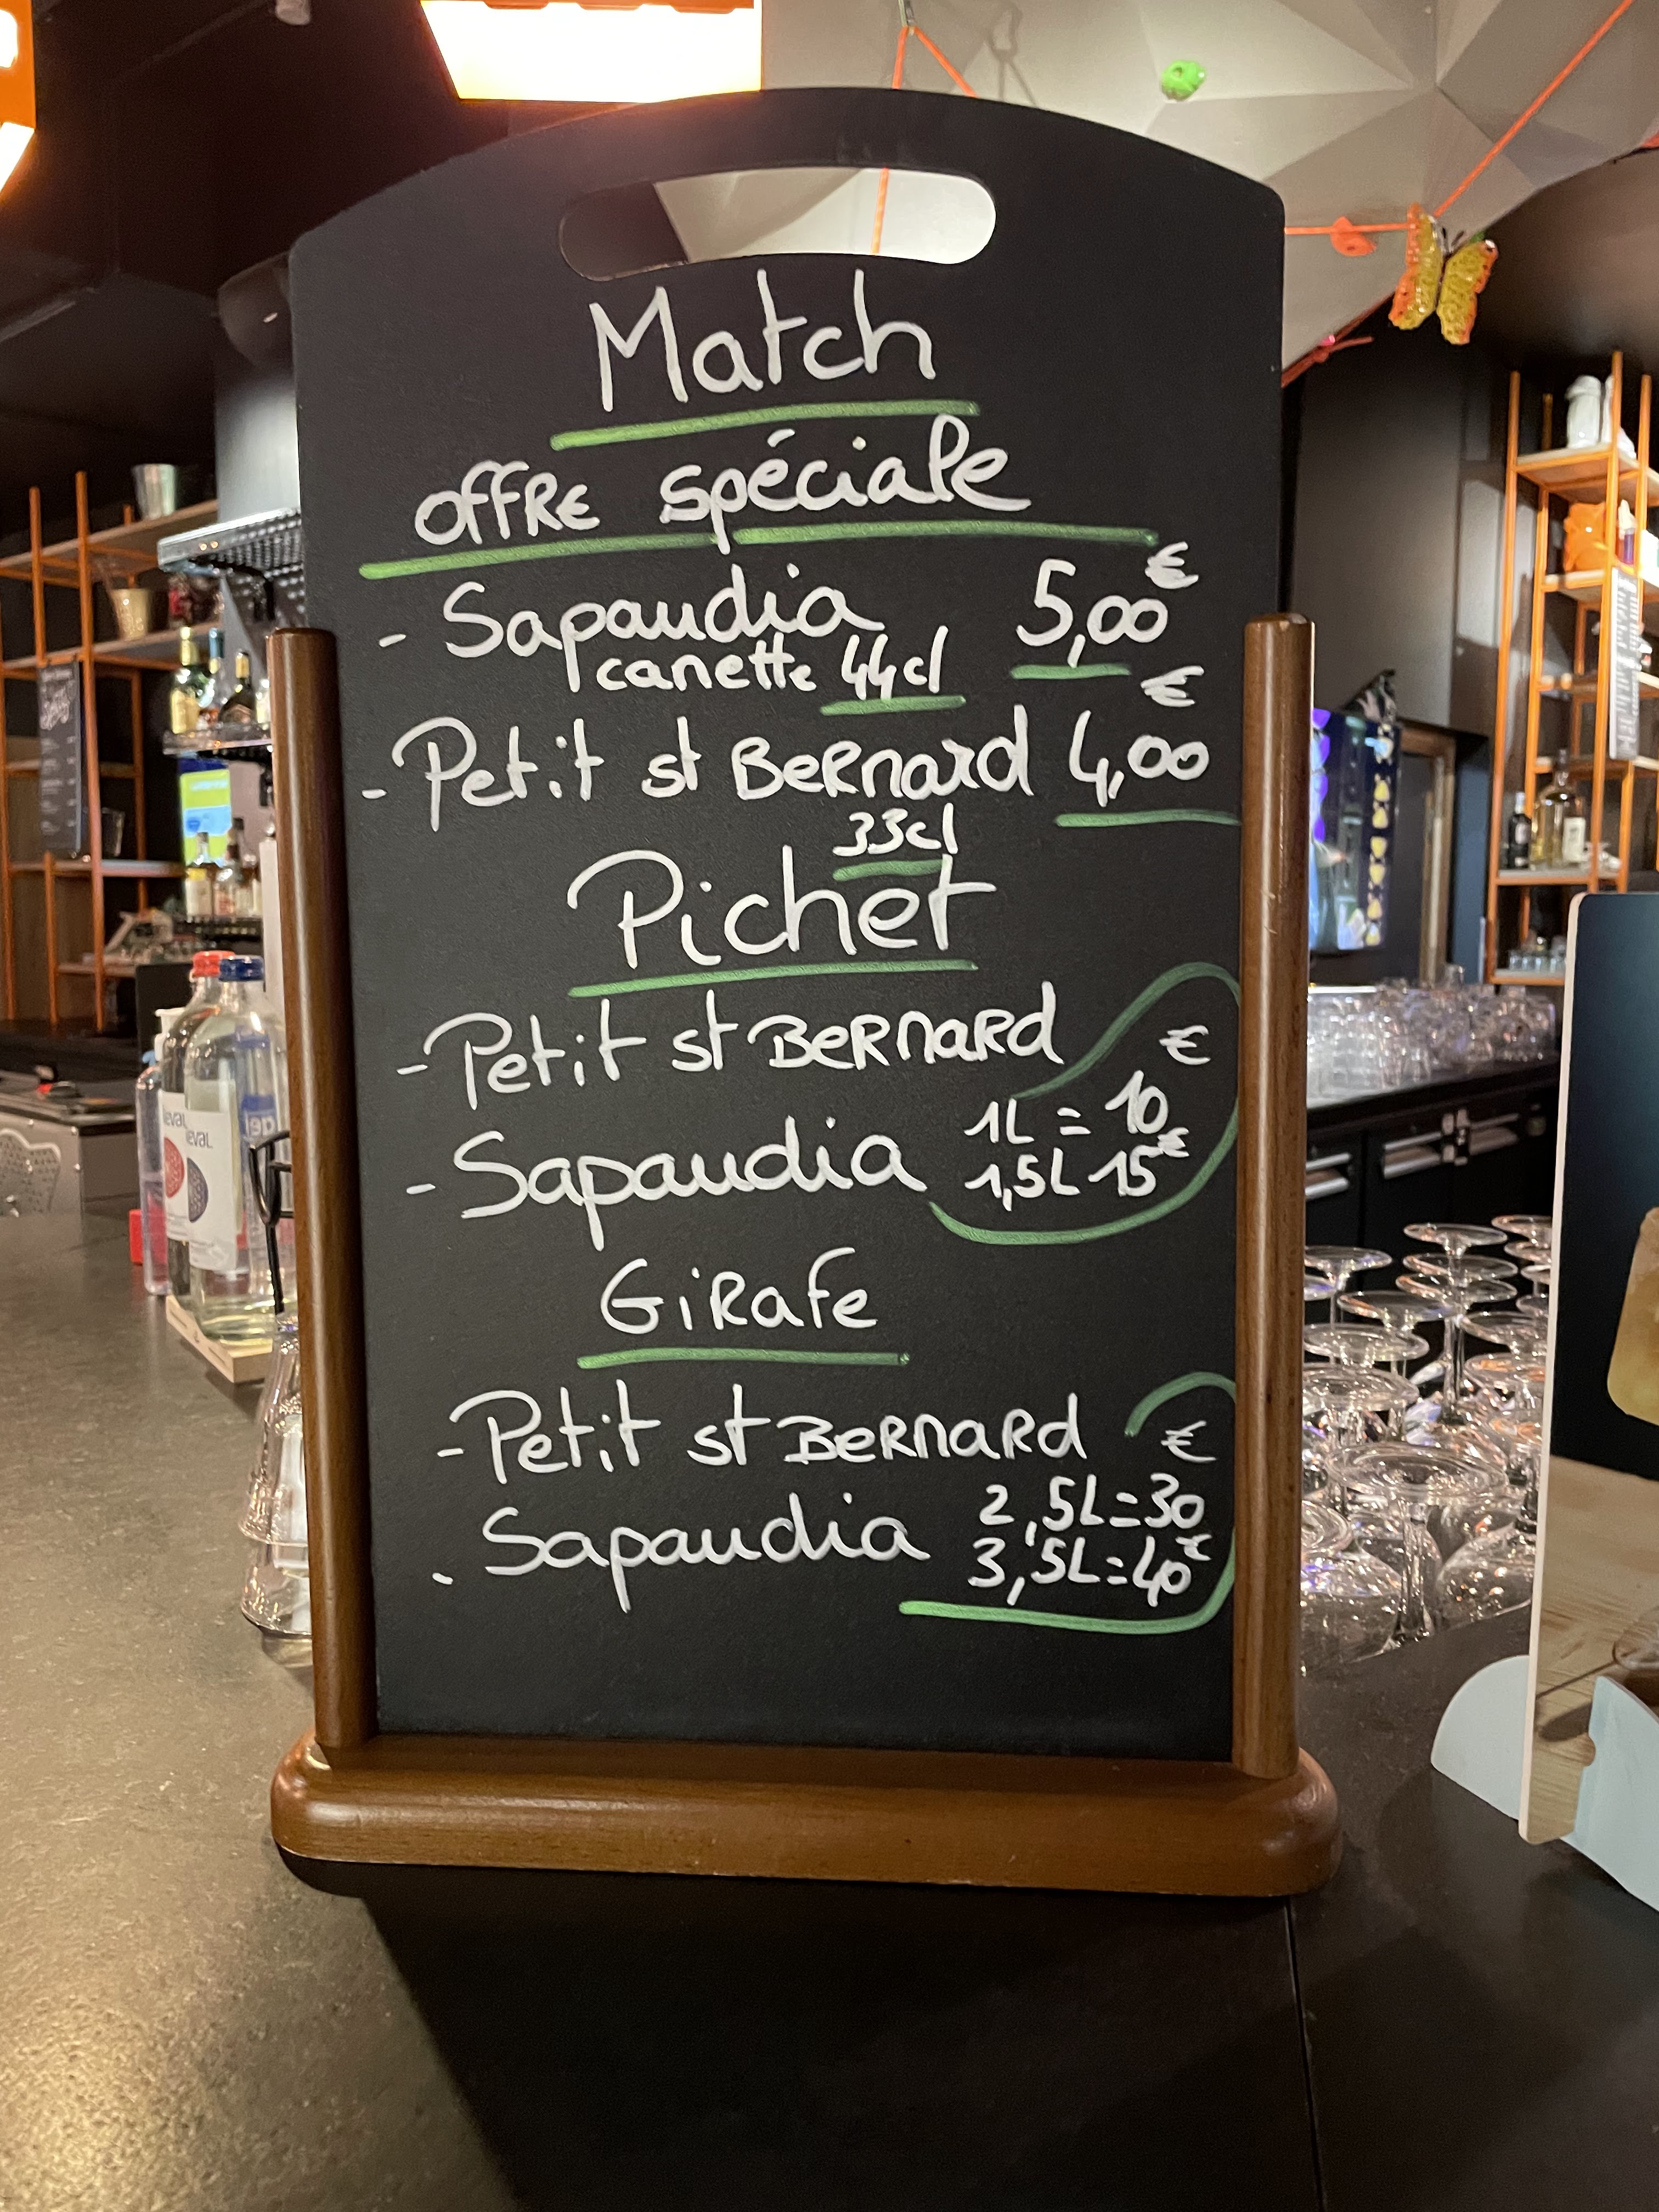 Match
offre spéciale
- Sapaudia 5,00€
canette 44cl
- Petit st Bernard 4,00€
33cl
Pichet
- Petit st Bernard
1L = 10€
- Sapaudia 1,5L 15€
Girafe
- Petit st Bernard
2,5L=30€
. Sapaudia 3,5L=40€